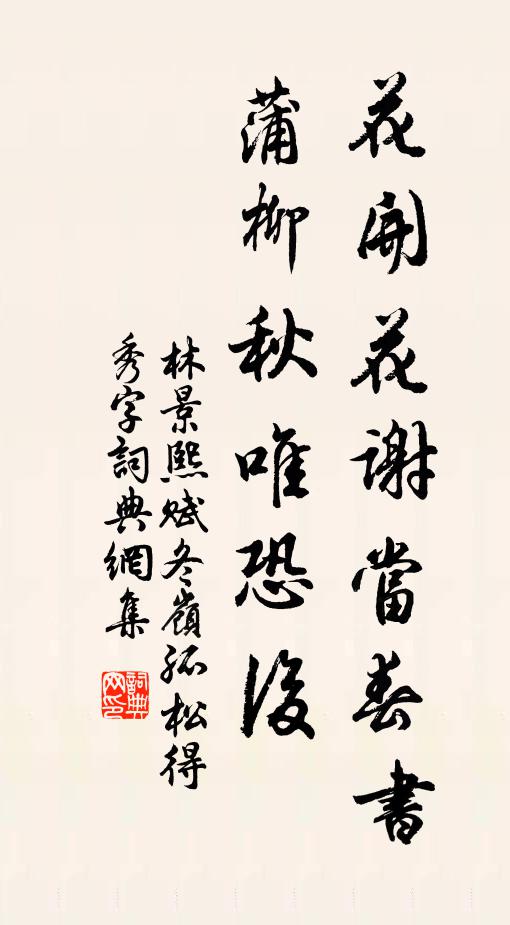 花開花謝當春書
蒲柳秋唯恐後
林景熙賦冬嶺孤松得
秀字詞典網集
詞典
网印